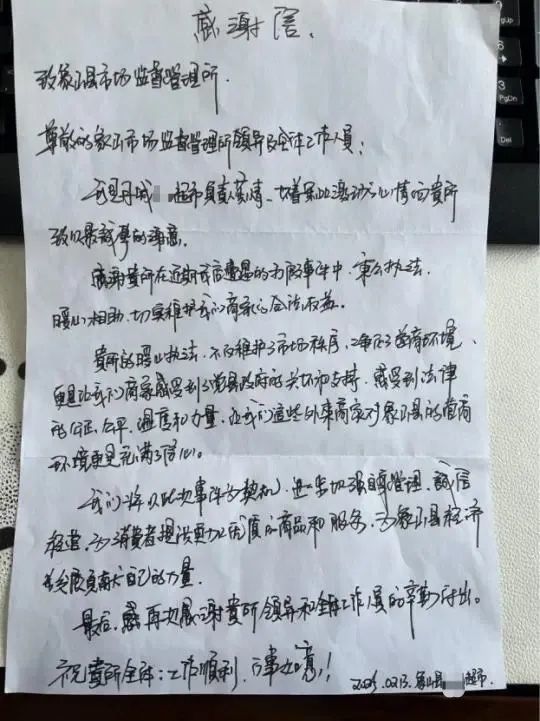 感谢信.
致象山县市场监督管理所.
尊敬的象山市场监督管理所领导及全体工作人员:
我是丹城 超市负责人 情.怀着无比激动的心情向贵所
致以最诚挚的谢意.
感谢贵所在近期我店遭遇的打假事件中,秉公执法.
暖心相助.切实维护我们商家的合法权益.
贵所的暖心执法.不仅维护了市场秩序,净化了营商环境.
更是让我们商家感受到了党县政府的关怀和支持,感受到法律
的公正.公平.温度和力量.让我们这些外来商家对象山县的营商
环境更是充满了信心.
我们将以此次事件为契机,进一步加强自律管理.诚信
经营.为消费者提供更加优质的商品和服务.为象山县经济
发展贡献自己的力量.
最后.再次感谢贵所领导和全体工作人员的辛勤付出。
祝贵所全体:工作顺利.万事如意!!
2025.02.13.象山县 超市.
PgUp
3
PgDn
Del